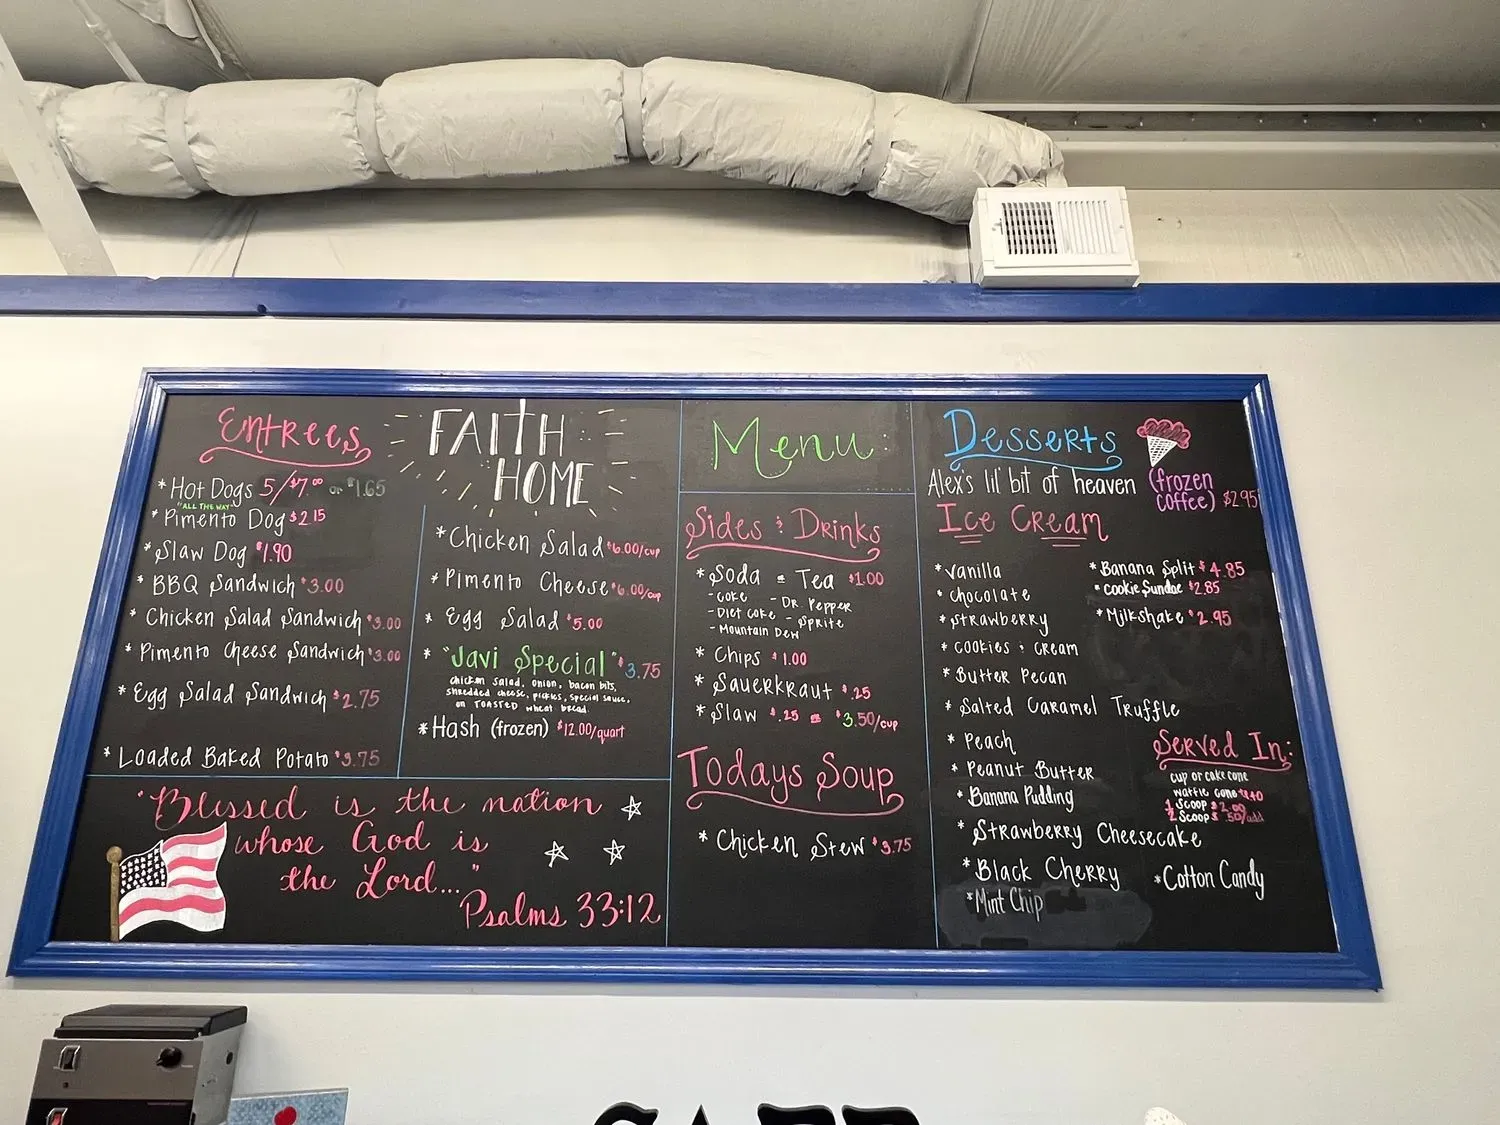 Entrees
* Hot Dogs 5/$7.00 or $1.65
"ALL THE WAY"
* Pimento Dog $2.15
* Slaw Dog $1.90
* BBQ Sandwich $3.00
* Chicken Salad Sandwich $3.00
* Pimento Cheese Sandwich $3.00
* Egg Salad Sandwich $2.75
* Loaded Baked Potato $3.75
FAITH
HOME
* Chicken Salad $6.00/cup
* Pimento Cheese $6.00/cup
* Egg Salad $5.00
* "Javi Special" $3.75
chicken salad, onion, bacon bits,
shredded cheese, pickles, special sauce,
on TOASTED wheat bread.
* Hash (frozen) $12.00/quart
"Blessed is the nation
whose God is
the Lord..."
Psalms 33:12
Menu
Sides & Drinks
* Soda or Tea $1.00
- Coke - DR. Pepper
- Diet Coke - Sprite
- Mountain Dew
* Chips $1.00
* Sauerkraut $.25
* Slaw $.25 or $3.50/cup
Todays Soup
* Chicken Stew $3.75
Desserts
Alex's lil' bit of heaven (frozen
coffee) $2.95
Ice Cream
* Vanilla
* chocolate
* Strawberry
* cookies & cream
* Butter Pecan
* Salted Caramel Truffle
* Peach
* Peanut Butter
* Banana Pudding
* Strawberry Cheesecake
* Black Cherry
* Mint Chip
* Banana Split $4.85
* cookie Sundae $2.85
* Milkshake $2.95
Served In:
cup or cake cone
waffle cone
1 Scoop $2.00
2 Scoops .50/add
* Cotton Candy